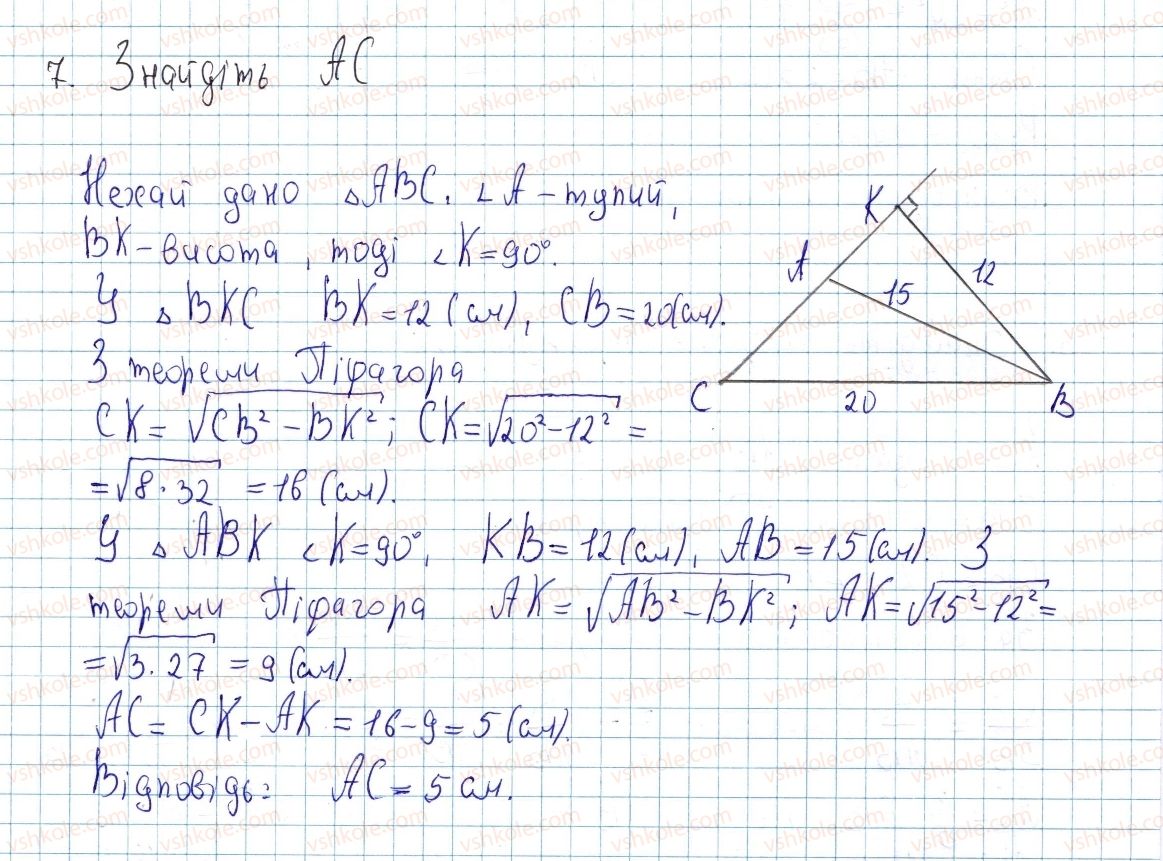 7. Знайдіть АС
Нехай дано △ABC. ∠A - тупий,
BK - висота, тоді ∠K = 90°.
У △BKC BK = 12 (см), CB = 20(см).
З теореми Піфагора
CK = √(CB² - BK²); CK = √(20² - 12²) =
= √(8·32) = 16 (см).
У △ABK ∠K = 90°, KB = 12 (см), AB = 15 (см). З
теореми Піфагора AK = √(AB² - BK²); AK = √(15² - 12²) =
= √(3·27) = 9 (см).
AC = CK - AK = 16 - 9 = 5 (см).
Відповідь: AC = 5 см.
K
A
12
15
C
20
B
vshkole.com